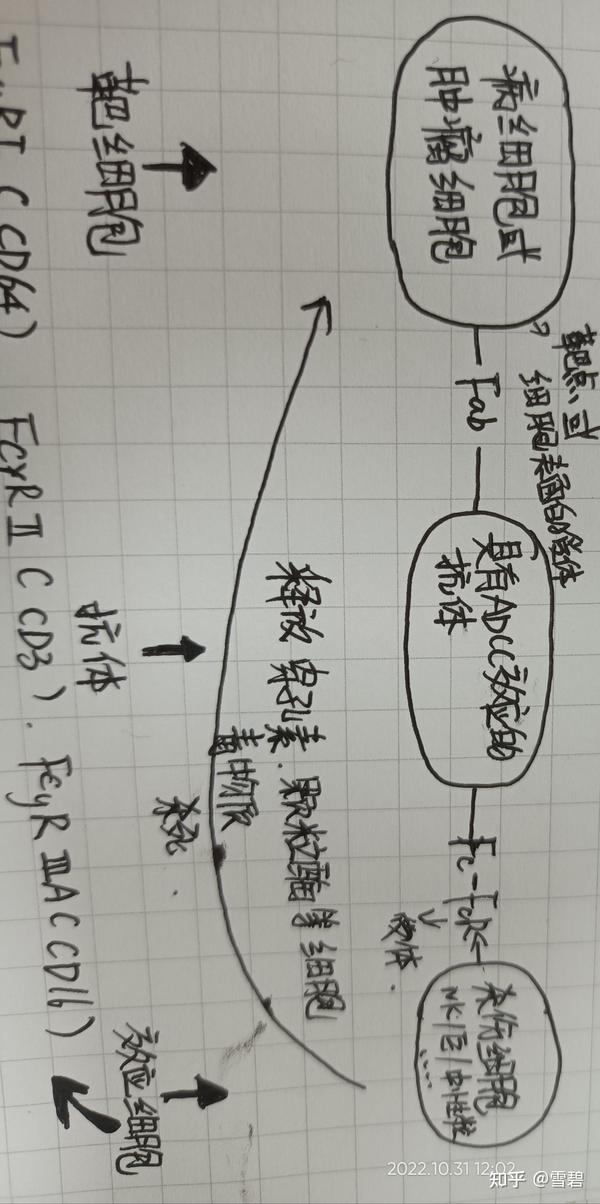 靶点、或
细胞表面的受体
病细胞或
肿瘤细胞
Fab
具有ADCC效应的
抗体
Fc-FcRs
受体.
杀伤细胞
NK/巨/中性粒
.....
释放 穿孔素.颗粒酶等细胞
毒物质
杀死.
靶细胞
抗体
效应细胞
FcγRI C CD64) FcγRII C CD3). FcγRIIIA C CD16)
2022.10.31 12:02
知乎 @雪碧